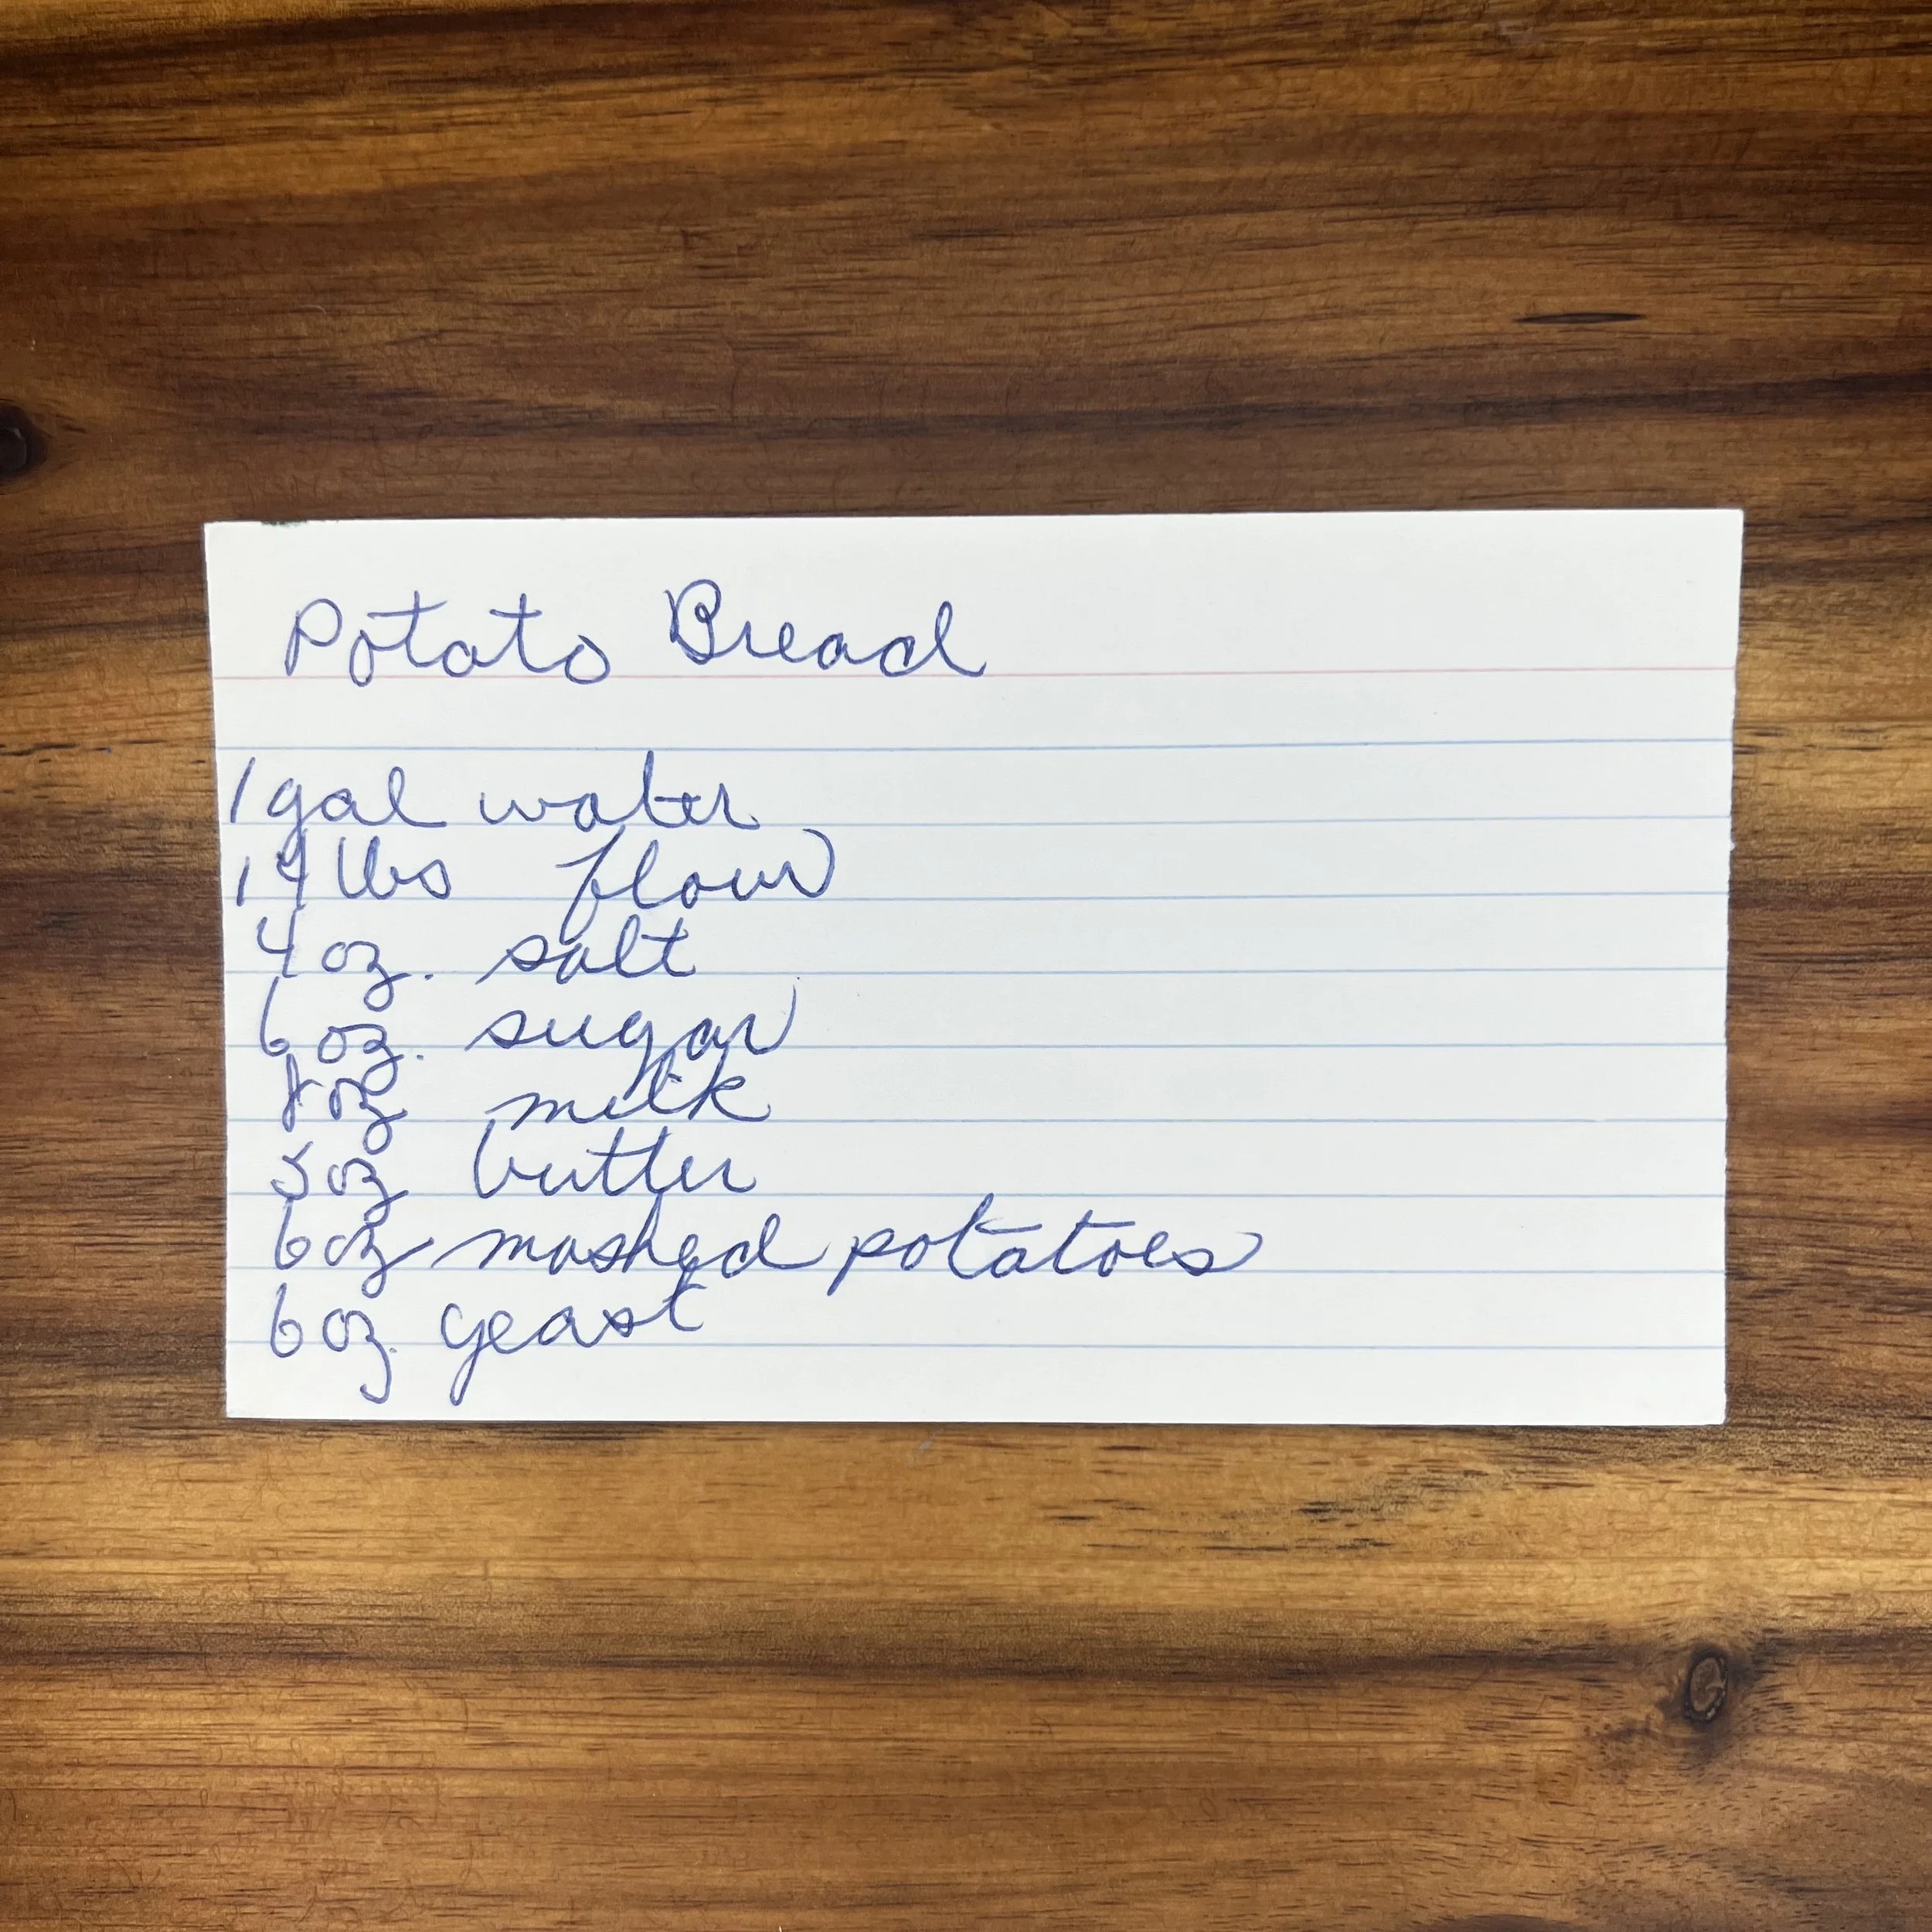 Potato Bread
1 gal water
14 lbs flour
4 oz. salt
6 oz. sugar
8 oz milk
5 oz butter
6 oz mashed potatoes
6 oz. yeast